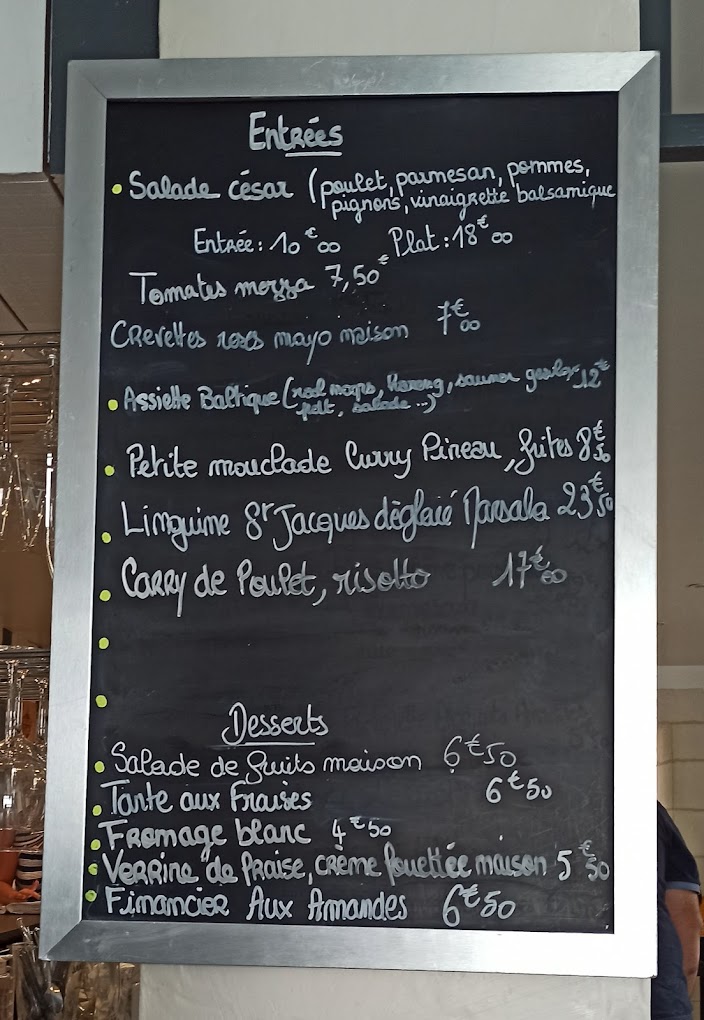 Entrées
Salade césar (poulet, parmesan, pommes,
pignons, vinaigrette balsamique
Entrée : 10€00 Plat : 18€00
Tomates mozza 7,50€
Crevettes roses mayo maison 7€00
Assiette Baltique (rol mops, Hareng, saumon 12€
salade ...)
Petite mouclade Curry Pineau, frites 8€50
Linguine St Jacques déglacé Marsala 23€50
Carry de Poulet, risotto 17€00
Desserts
Salade de fruits maison 6€50
Tarte aux Fraises 6€50
Fromage blanc 4€50
Verrine de fraise, crème fouettée maison 5€50
Financier Aux Amandes 6€50